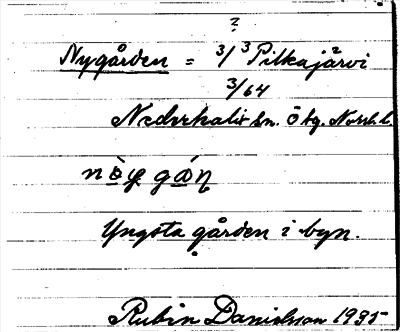 ?
Nygården = 3/3 Pilkajärvi
3/64
Nederkalix sn. Ö bg. Norrb. l.
Yngsta gården i byn.
Rubin Danielsson 1935